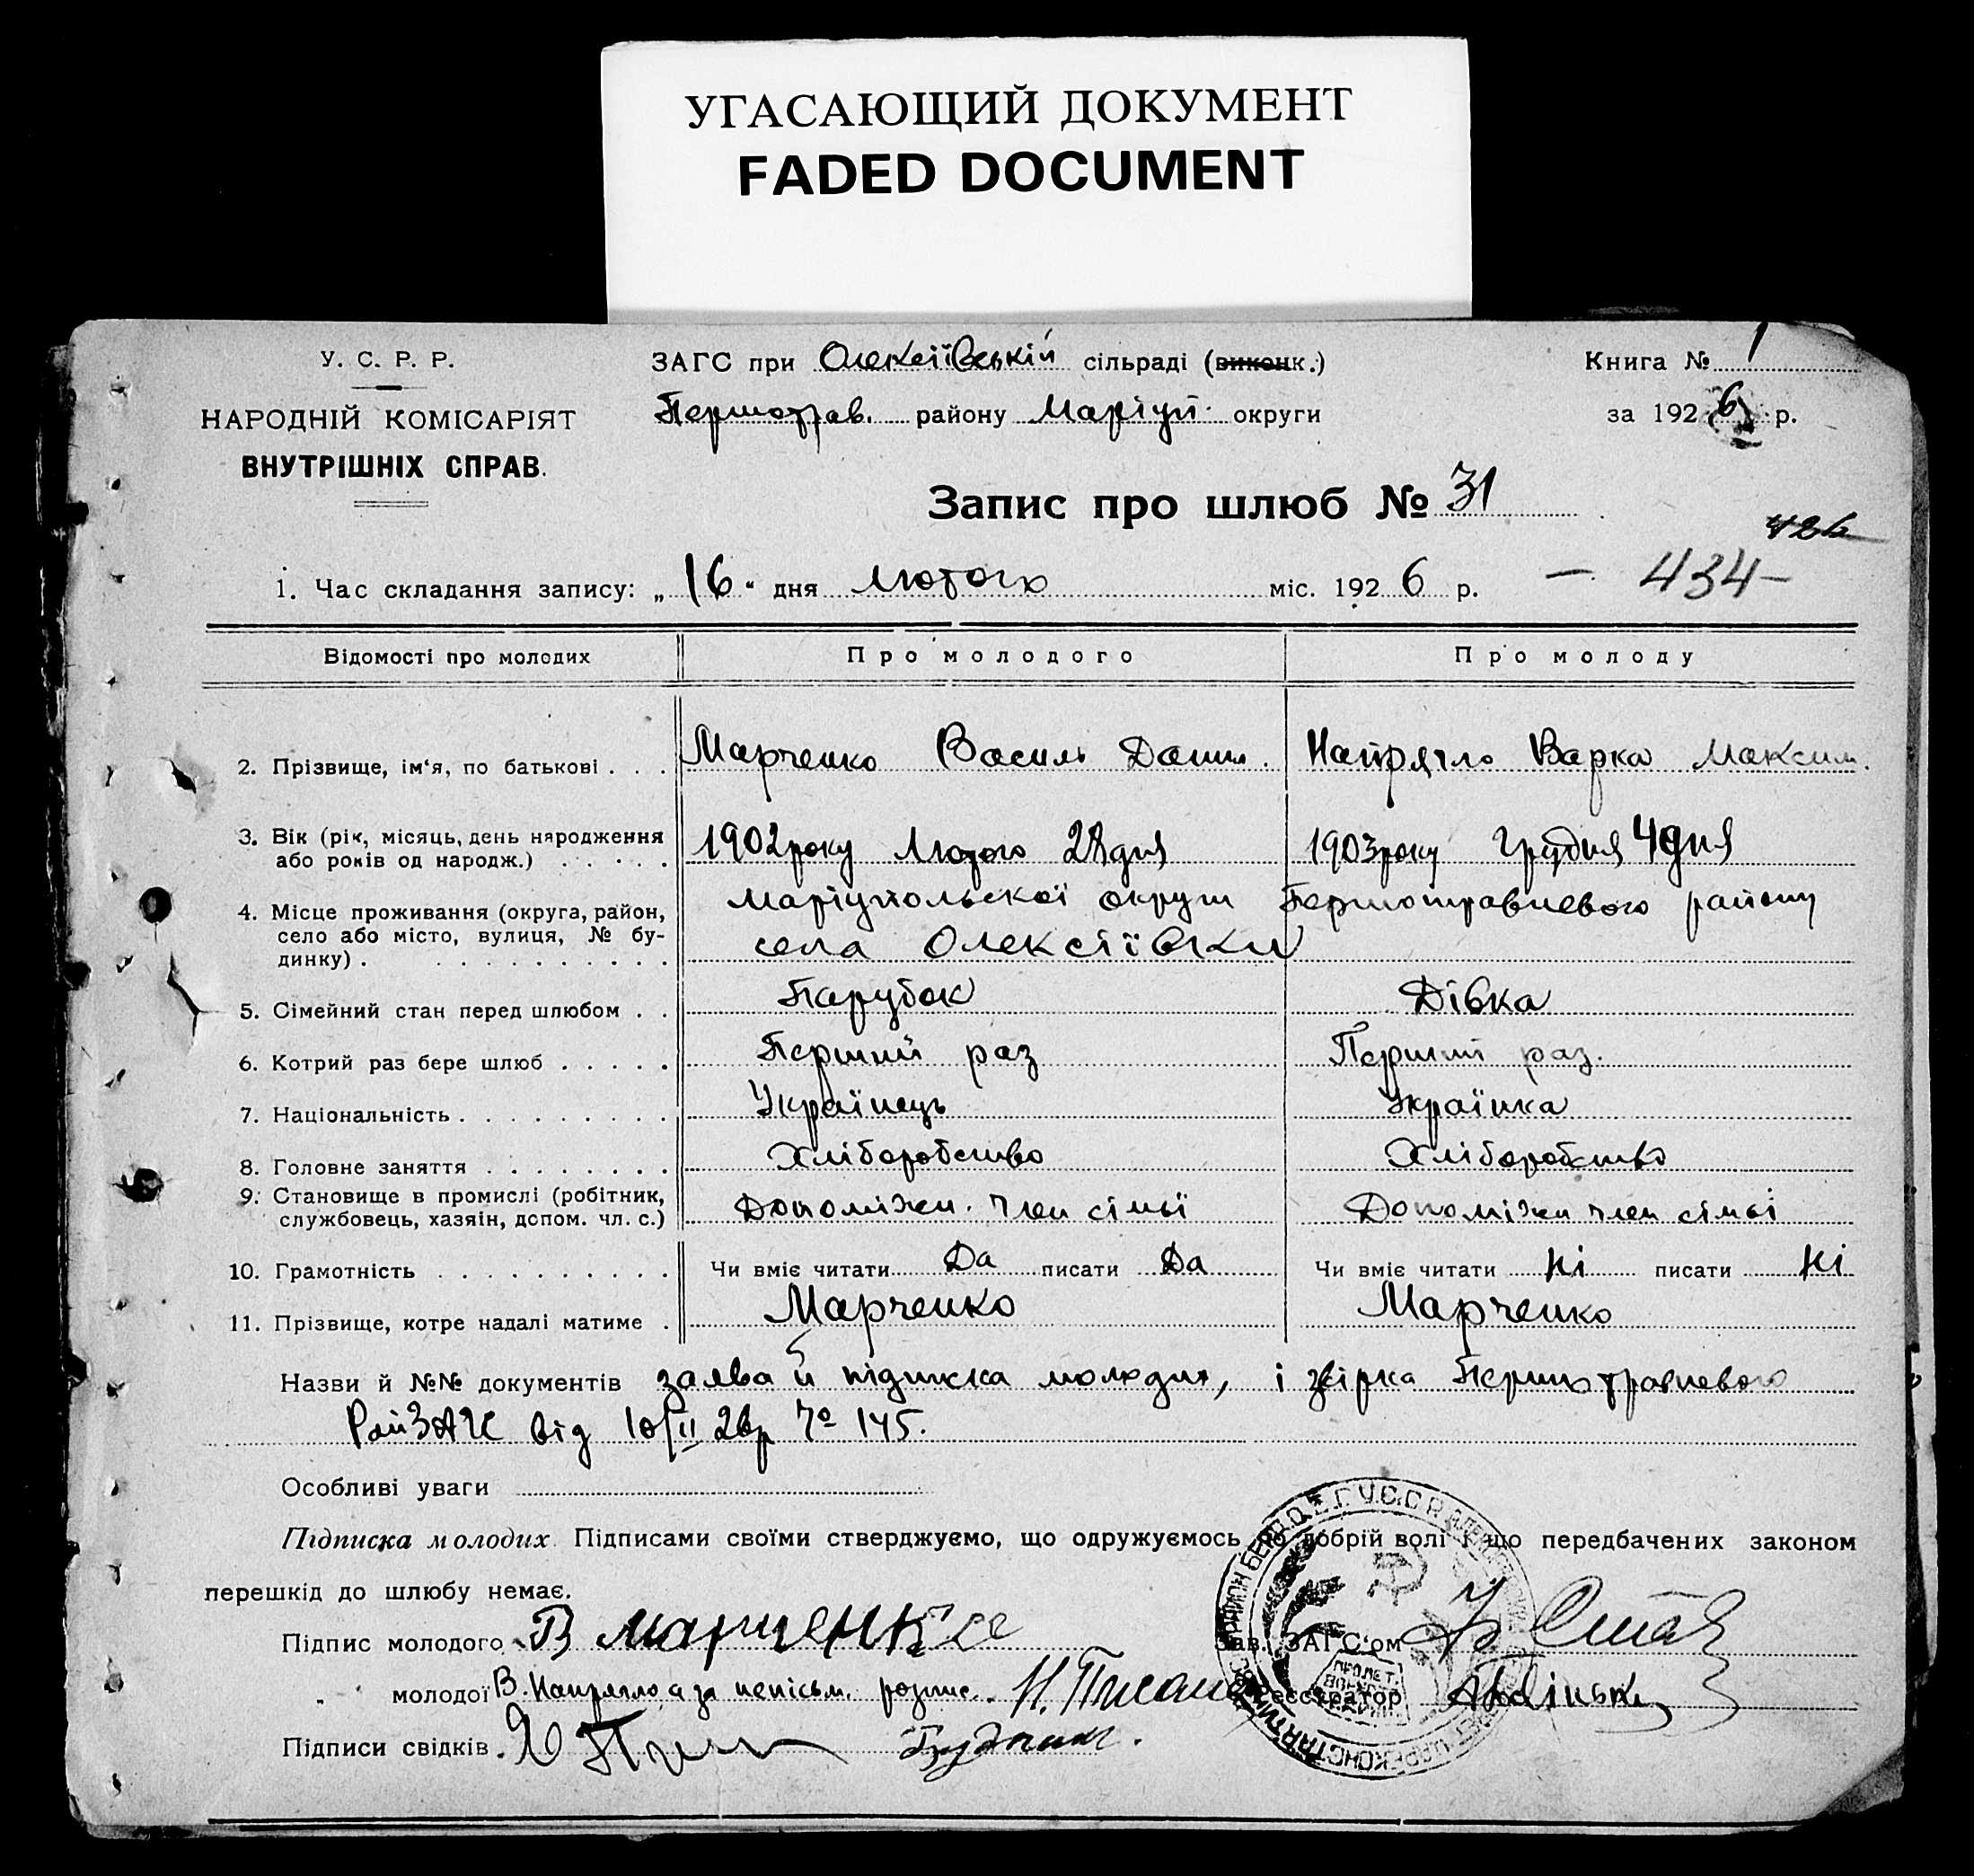 УГАСАЮЩИЙ ДОКУМЕНТ
FADED DOCUMENT
У. С. Р. Р.
НАРОДНІЙ КОМІСАРІЯТ
ВНУТРІШНІХ СПРАВ.
ЗАГС при Олексіївській сільраді (виконк.)
Першотрав. району Маріуп. округи
Книга № 1
за 1926 р.
Запис про шлюб № 31
426
1. Час складання запису: „16“ дня Лютого міс. 1926 р. — 434 —
Відомості про молодих Про молодого Про молоду
2. Прізвище, ім‘я, по батькові . . . Марченко Василь Данил. Напрягло Варка Максим.
3. Вік (рік, місяць, день народження
або років од народж.) . . . . . 1902 року Лютого 28 дня 1903 року Грудня 4 дня
4. Місце проживання (округа, район, Маріупольскої округи Першотравневого району
село або місто, вулиця, № бу-
динку) . . . . . . . . . . . села Олексіївки
5. Сімейний стан перед шлюбом . . Парубок Дівка
6. Котрий раз бере шлюб . . . . . Перший раз Перший раз.
7. Національність . . . . . . . . . Українець Українка
8. Головне заняття . . . . . . . . Хліборобство Хліборобство
9. Становище в промислі (робітник,
службовець, хазяїн, допом. чл. с.) Допоміжн. член сімьї Допоміжн член сімьї
10. Грамотність . . . . . . . . . . Чи вміє читати Да писати Да Чи вміє читати Ні писати Ні
11. Прізвище, котре надалі матиме . Марченко Марченко
Назви й №№ документів заява й підписка молодих, і звірка Першотравневого
РайЗАГС від 10/II 26р № 145.
Особливі уваги
Підписка молодих. Підписами своїми стверджуємо, що одружуємось по добрій волі і що передбачених законом
перешкід до шлюбу немає.
Підпис молодого В Марченко Зав. ЗАГС‘ом
" молодої В. Напрягло а за неписьм. розпис. Реєстратор
Підписи свідків